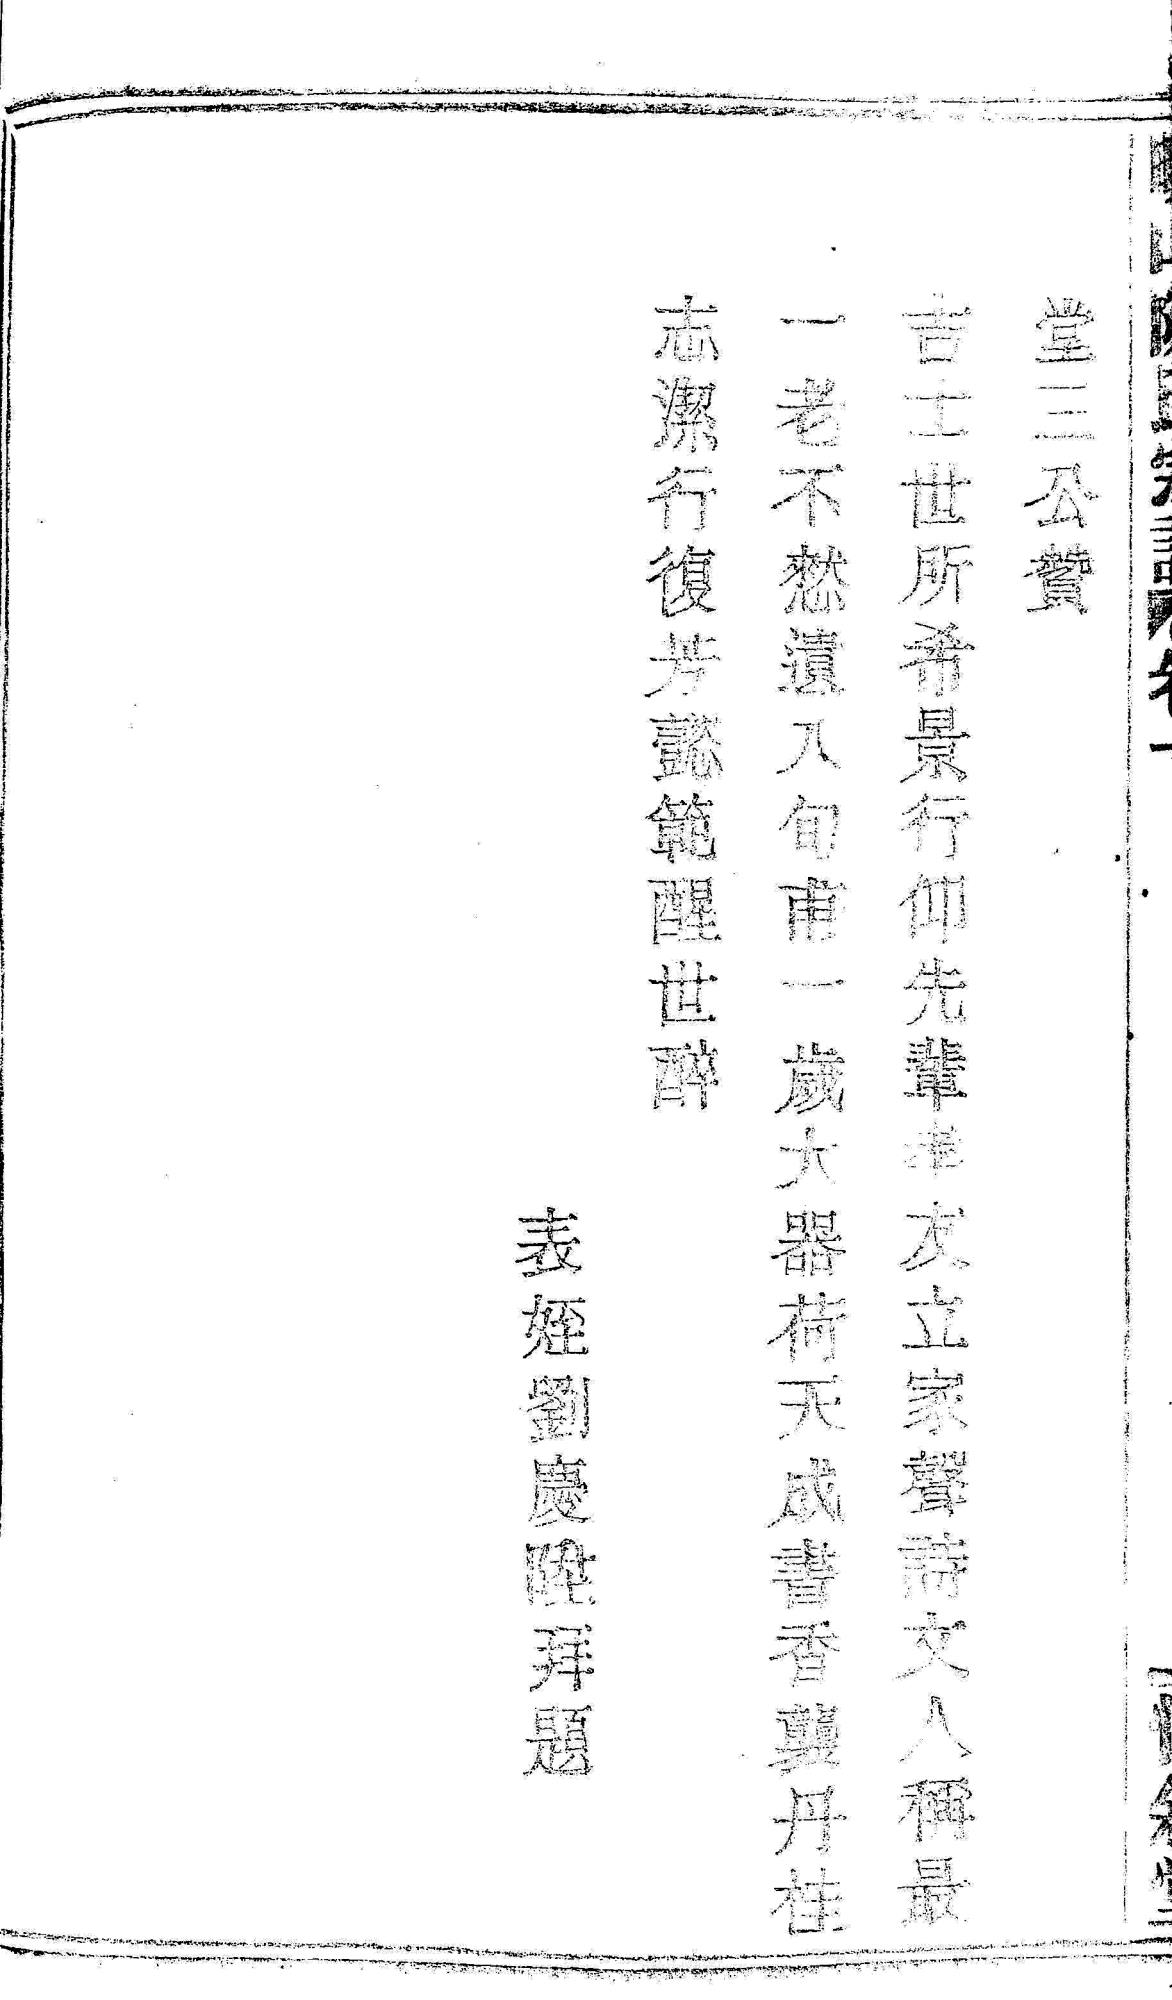 堂三公贊
吉士世所希景行仰先輩孝友立家聲詩文人稱最
一老不憖遺八旬甫一歲大器荷天成書香襲丹桂
志潔行復芳懿範醒世醉
表姪劉慶陞拜題